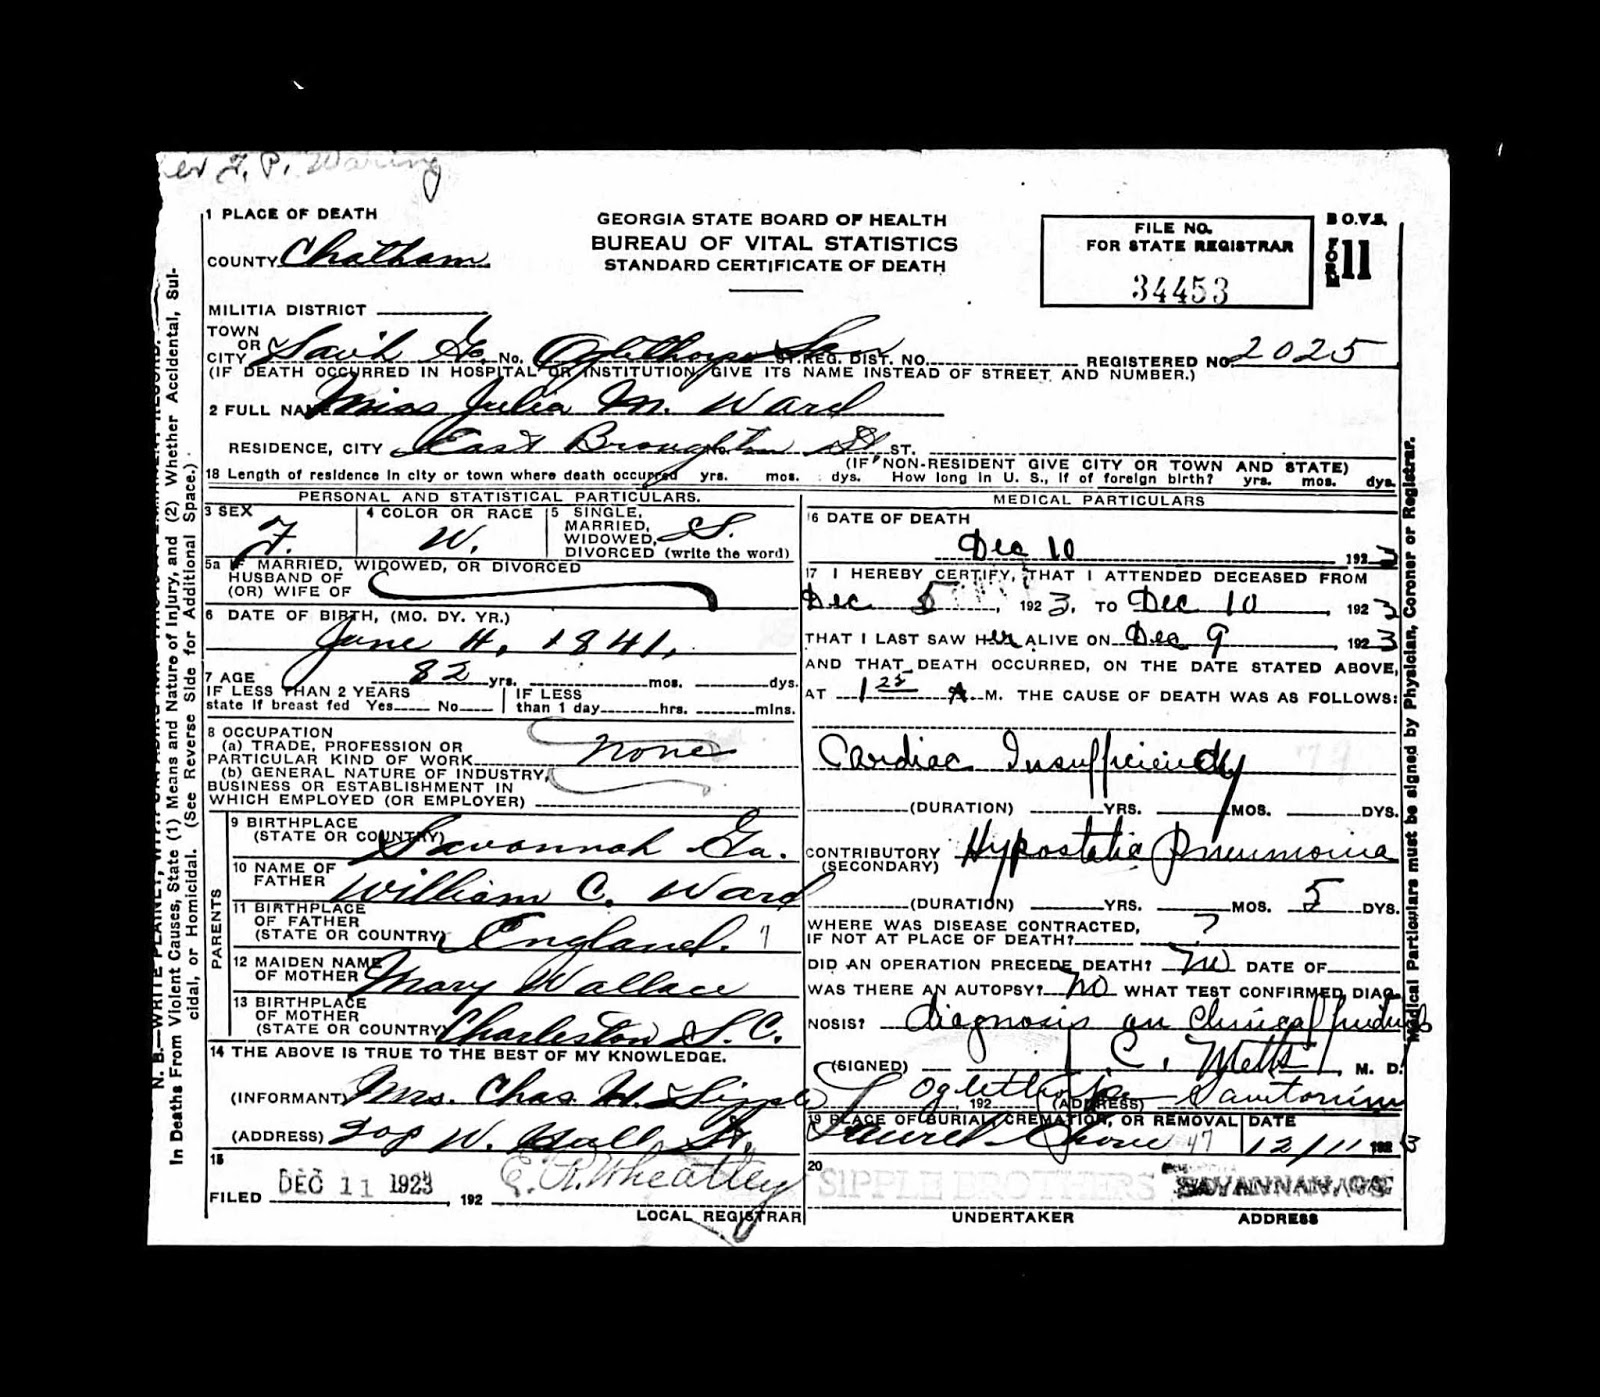 er F. P. Waring
1 PLACE OF DEATH
COUNTY Chatham
MILITIA DISTRICT
GEORGIA STATE BOARD OF HEALTH
BUREAU OF VITAL STATISTICS
STANDARD CERTIFICATE OF DEATH
FILE NO.
FOR STATE REGISTRAR
34453
B O.V.S.
FORM 11
TOWN
OR
CITY Sav'h Ga. No. Oglethorpe San ST. REG. DIST. NO. REGISTERED NO. 2025
(IF DEATH OCCURRED IN HOSPITAL OR INSTITUTION, GIVE ITS NAME INSTEAD OF STREET AND NUMBER.)
2 FULL NAME Miss Julia M. Ward
RESIDENCE, CITY East Broughton St ST.
(IF NON-RESIDENT GIVE CITY OR TOWN AND STATE)
18 Length of residence in city or town where death occurred yrs. mos. dys. How long in U. S., if of foreign birth? yrs. mos. dys.
PERSONAL AND STATISTICAL PARTICULARS.
3 SEX F.
4 COLOR OR RACE W.
5 SINGLE,
MARRIED,
WIDOWED,
DIVORCED (write the word) S.
5a IF MARRIED, WIDOWED, OR DIVORCED
HUSBAND OF
(OR) WIFE OF
6 DATE OF BIRTH, (MO. DY. YR.)
June 4, 1841.
7 AGE 82 yrs. mos. dys.
IF LESS THAN 2 YEARS
state if breast fed Yes No
IF LESS
than 1 day hrs. mins.
8 OCCUPATION
(a) TRADE, PROFESSION OR
PARTICULAR KIND OF WORK none
(b) GENERAL NATURE OF INDUSTRY,
BUSINESS OR ESTABLISHMENT IN
WHICH EMPLOYED (OR EMPLOYER)
PARENTS
9 BIRTHPLACE
(STATE OR COUNTRY) Savannah Ga.
10 NAME OF
FATHER William C. Ward
11 BIRTHPLACE
OF FATHER
(STATE OR COUNTRY) England.
12 MAIDEN NAME
OF MOTHER Mary Wallace
13 BIRTHPLACE
OF MOTHER
(STATE OR COUNTRY) Charleston S. C.
14 THE ABOVE IS TRUE TO THE BEST OF MY KNOWLEDGE.
(INFORMANT) Mrs. Chas. H. Sipple
(ADDRESS) 208 W. Hall St.
15
FILED DEC 11 1923, 192 E. R. Wheatley
LOCAL REGISTRAR
MEDICAL PARTICULARS
16 DATE OF DEATH
Dec 10 1923
17 I HEREBY CERTIFY, THAT I ATTENDED DECEASED FROM
Dec 5, 1923, TO Dec 10, 1923
THAT I LAST SAW Her ALIVE ON Dec 9, 1923
AND THAT DEATH OCCURRED, ON THE DATE STATED ABOVE,
AT 1 25 A M. THE CAUSE OF DEATH WAS AS FOLLOWS:
Cardiac Insufficiency
(DURATION) YRS. MOS. DYS.
CONTRIBUTORY
(SECONDARY) Hypostatic Pneumonia
(DURATION) YRS. MOS. 5 DYS.
WHERE WAS DISEASE CONTRACTED,
IF NOT AT PLACE OF DEATH? ?
DID AN OPERATION PRECEDE DEATH? No DATE OF
WAS THERE AN AUTOPSY? No WHAT TEST CONFIRMED DIAG
NOSIS? diagnosis on clinical findings
(SIGNED) C. Metts, M. D.
, 192 (ADDRESS) Oglethorpe Sanitorium
19 PLACE OF BURIAL, CREMATION, OR REMOVAL Laurel Grove 47
DATE 12/11 1923
20
SIPPLE BROTHERS SAVANNAH, GA.
UNDERTAKER ADDRESS
In Deaths From Violent Causes, State (1) Means and Nature of Injury, and (2) Whether Accidental, Sui-
cidal, or Homicidal. (See Reverse Side for Additional Space.)
Medical Particulars must be signed by Physician, Coroner or Registrar.